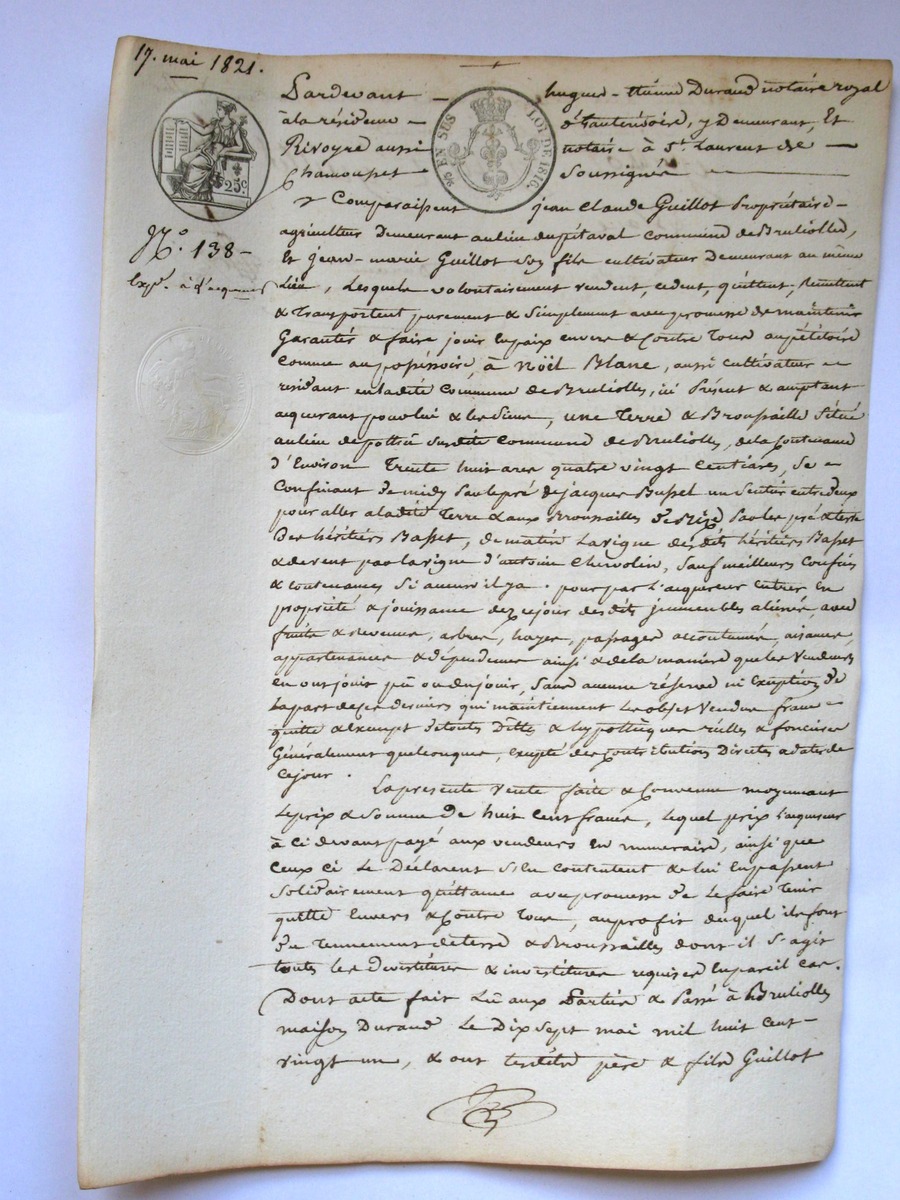 17. mai 1821.
Pardevant hugues-étienne Durand notaire royal
à la résidence d'hauterivoire, y Demeurant, Et
Rivoyre aussi notaire à St Laurent de
Chamousset Soussignés
Comparaissent jean Claude Guillot Propriétaire-
25c.
95 EN SUS LOI DE 1816.
N.o 138-
agriculteur Demeurant au lieu du pitaval commune de Brulioles,
Et jean-marie Guillot son fils cultivateur Demeurant au même
Exp.n à l'acquereur
Lieu, Lesquels volontairement vendent, cedent, quittent, Remettent
& Transportent purement & Simplement avec promesse de maintenir
Garantir & faire jouir En paix envers & Contre Tous au pétitoire
Comme au possessoire, à Noël Blanc, aussi cultivateur
résidant en ladite Commune de Brulioles, ici Présent & acceptant
acquerant pour lui & les Siens, une Terre & Broussaille Située
au lieu de susdite Commune de Brulioles, de la Contenance
d'Environ Trente huit ares quatre vingt Centiares, Se
Confinant de midy par le pré de jacques Bussel un Sentier entredeux
pour aller à ladite Terre & aux Broussailles de Bize par les pré & terre
Des héritiers Basset, de matin La vigne desdits héritiers Basset
& de vent par la vigne d'antoine Chervolin, Sauf meilleurs Confins
& Contenances Si aucuns il y a. pour par l'acquereur Entrer En
propriété & jouissance dez ce jour desdits jmmeubles aliénés, avec
fruits & revenus, arbres, hayes, passages accoutumés, aisances,
appartenances & dépendances ainsi & de la manière que les Vendeurs
En ont jouit pû ou dû jouir, Sans aucune réserve ni Exception de
La part de ces derniers qui maintiennent Les objets Vendus francs
quitte & Exempt de touts Dettes & hypothèques réelles & foncières
Généralement quelconques, excepté des Contributions Directes à dater de
Ce jour.
La présente Vente faite & Convenue moyennant
Le prix & Somme de huit Cent francs, Lequel prix L'acquereur
à Ci devant payé aux vendeurs En numeraire, ainsi que
Ceux ci Le Déclarent S'en Contentent & lui En passent
Solidairement quittance avec promesse de Le faire Tenir
quitte Envers & Contre Tous, au profit duquel ils font
du Tennement de terre & Broussailles dont il S'agit
toutes les Devestitures & investitures requises En pareil cas.
Dont acte fait Lû aux Parties & Passé à Brulioles
maison Durand Le Dix Sept mai mil huit Cent
vingt un, & ont lesdits père & fils Guillot